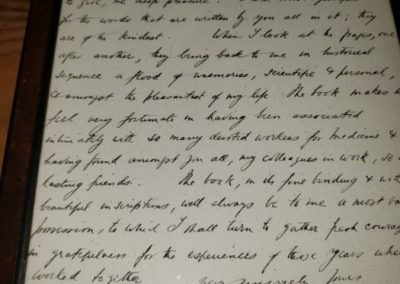 to give, me deep pleasure. I
for the words that are written by you all in it; they
are of the kindest. When I look at the pages, one
after another, they bring back to me in historical
sequence a flood of memories, scientific & personal,
& amongst the pleasantest of my life. The book makes m
feel very fortunate in having been associated
intimately with so many devoted workers for medicine &
having found amongst you all, my colleagues in work, so
lasting friends. The book, in its fine binding & with
beautiful inscriptions, will always be to me a most
possession, to which I shall turn to gather fresh coura
in gratefulness for the experiences of those years when
worked together
very sincerely yours